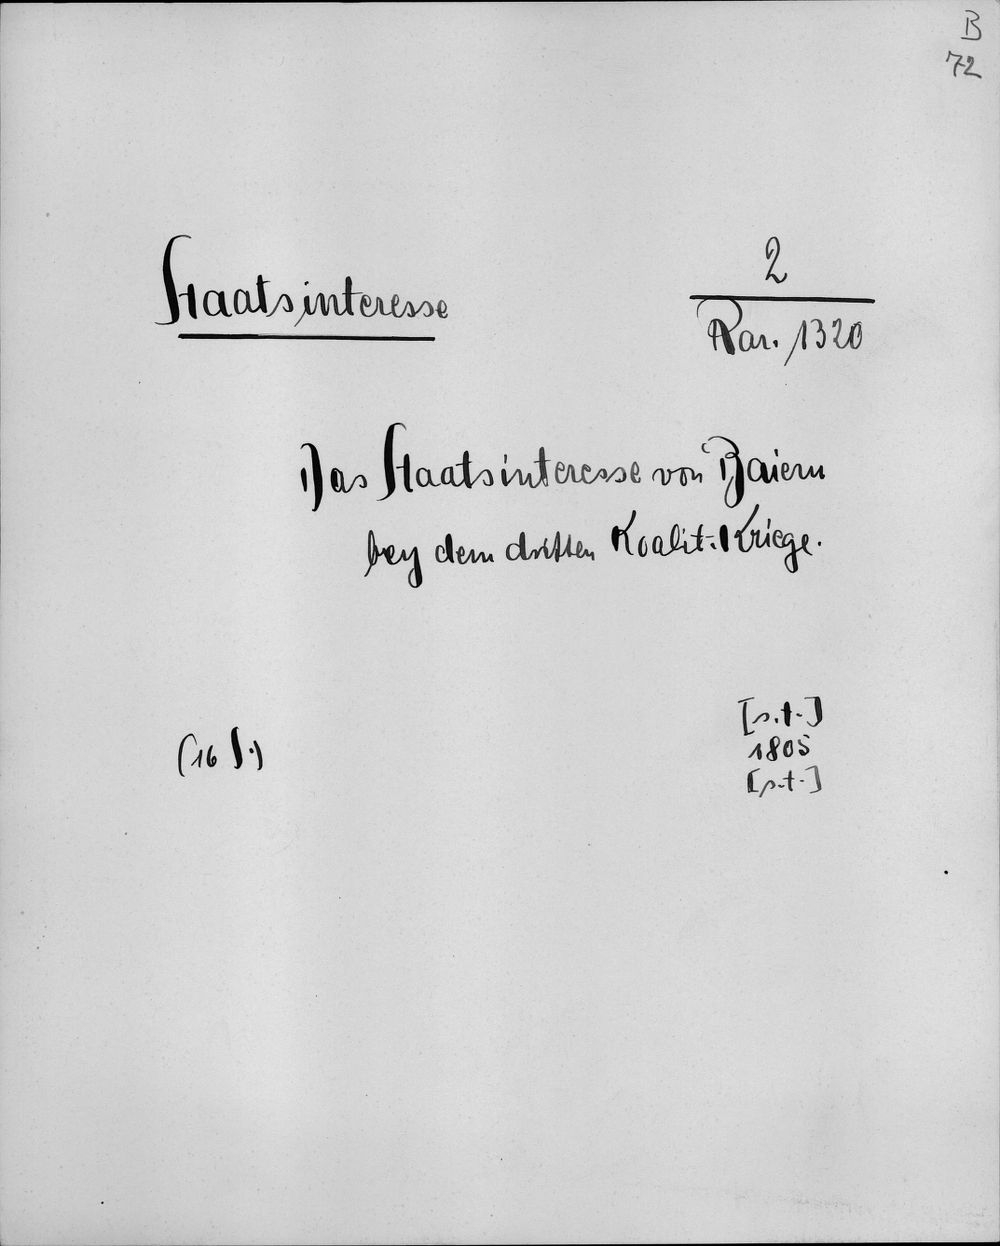 B
72
Staatsinteresse
2
Rar. 1320
Das Staatsinteresse von Baiern
bey dem dritten Koalit.-Kriege.
[s.t.]
(16 S.)
1805
[s.t.]